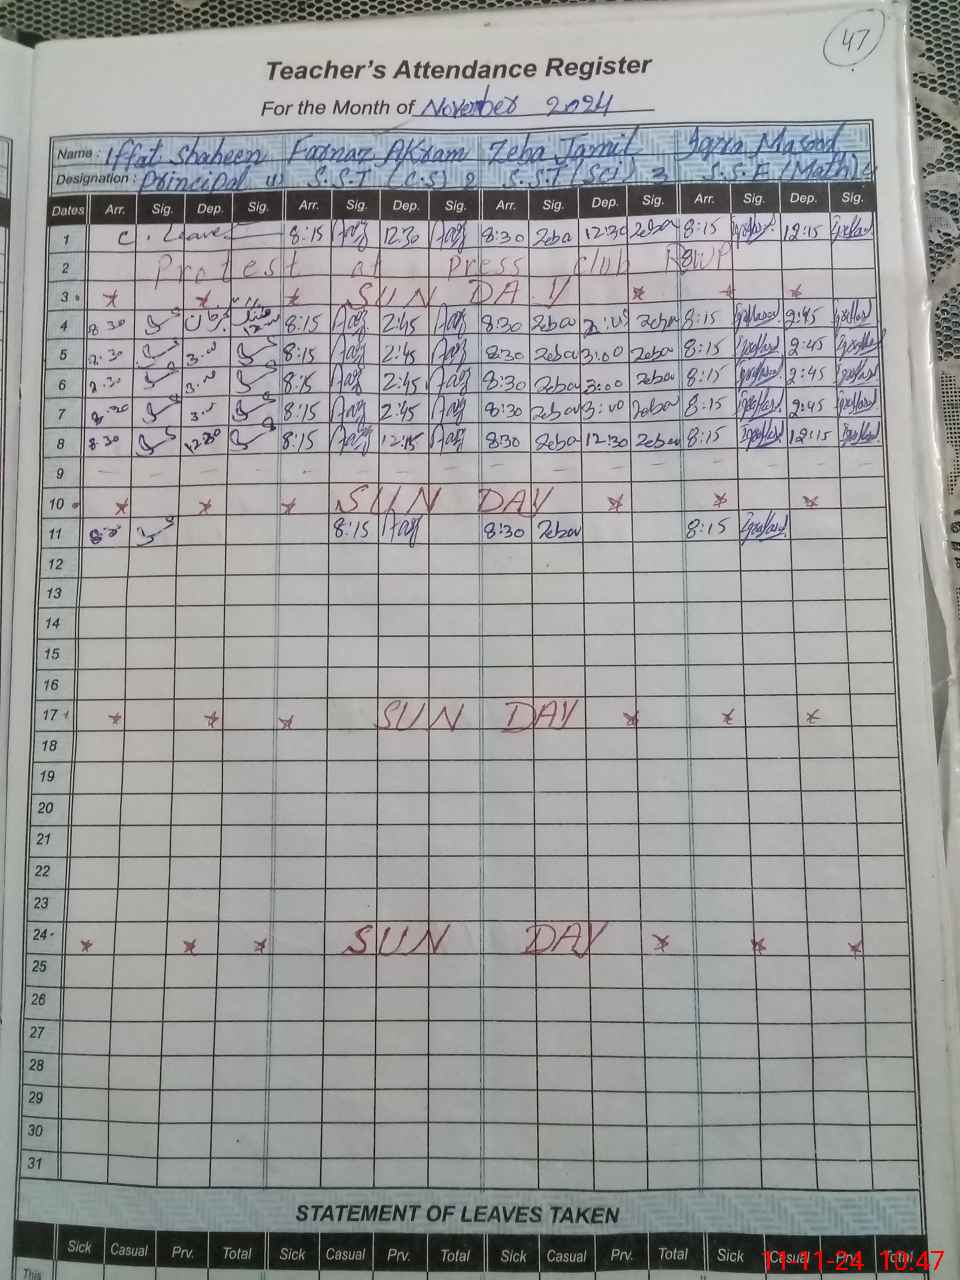 47
Teacher's Attendance Register
For the Month of November 2024
Name : Iffat Shaheen Farnaz Akram Zeba Jamil Iqra Masood
Designation : Principal (1) S.S.T (C.S) 2 S.S.T (Sci) 3 S.S.E (Math) 4
Dates Arr. Sig. Dep. Sig. Arr. Sig. Dep. Sig. Arr. Sig. Dep. Sig. Arr. Sig. Dep. Sig.
1 C. Leave 8:15 12:30 8:30 Zeba 12:30 Zeba 8:15 12:15
2 Protest at Press club RWP
3 SUNDAY
4 8:30 8:15 2:45 8:30 Zeba Zeba 8:15 2:45
5 8:30 3:00 8:15 2:45 8:30 Zeba 3:00 Zeba 8:15 2:45
6 8:30 3:00 8:15 2:45 8:30 Zeba 3:00 Zeba 8:15 2:45
7 8:30 3:00 8:15 2:45 8:30 Zeba 3:00 Zeba 8:15 2:45
8 8:30 12:30 8:15 12:15 8:30 Zeba 12:30 Zeba 8:15 12:15
9
10 SUN DAY
11 8:15 8:30 Zeba 8:15
12
13
14
15
16
17 SUN DAY
18
19
20
21
22
23
24 SUN DAY
25
26
27
28
29
30
31
STATEMENT OF LEAVES TAKEN
Sick Casual Prv. Total Sick Casual Prv. Total Sick Casual Prv. Total Sick Casual Prv. Total
This
11-11-24 10:47